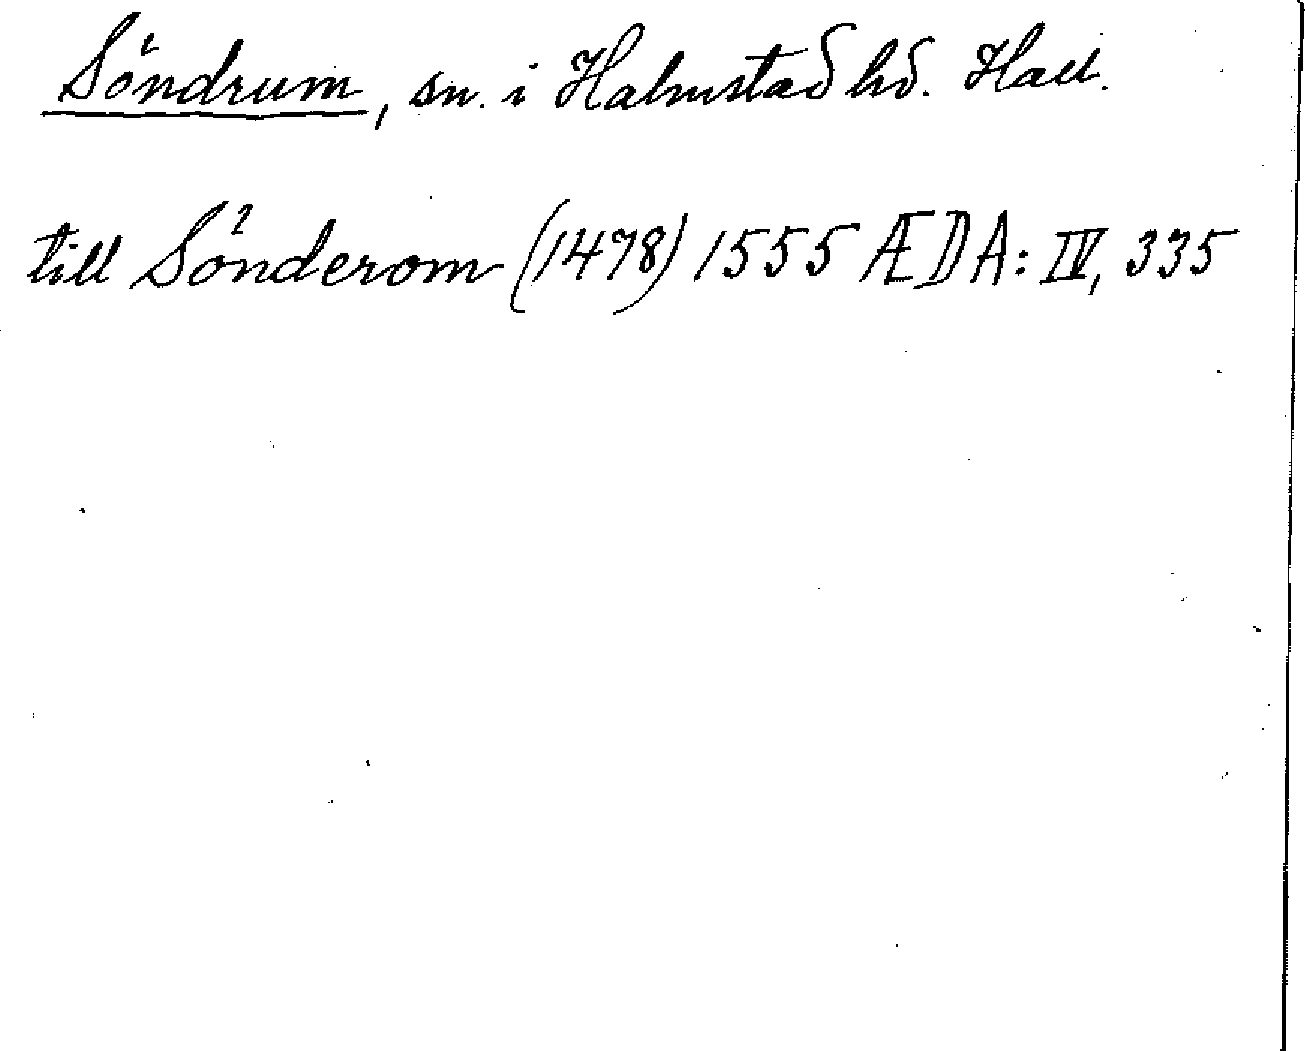 Söndrum, sn. i Halmstad hd. Hall.
till Sönderom (1478) 1555 ÆDA: IV, 335